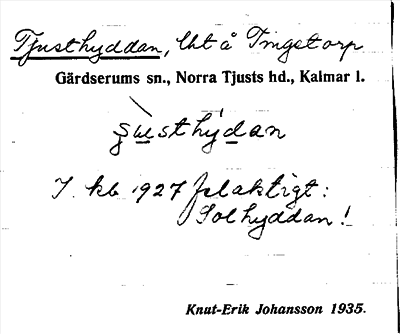 Tjusthyddan, lht å Tingetorp
Gärdserums sn., Norra Tjusts hd., Kalmar l.
s̨u̲sthýd̲an
I kb 1927 felaktigt:
Solhyddan!
Knut-Erik Johansson 1935.